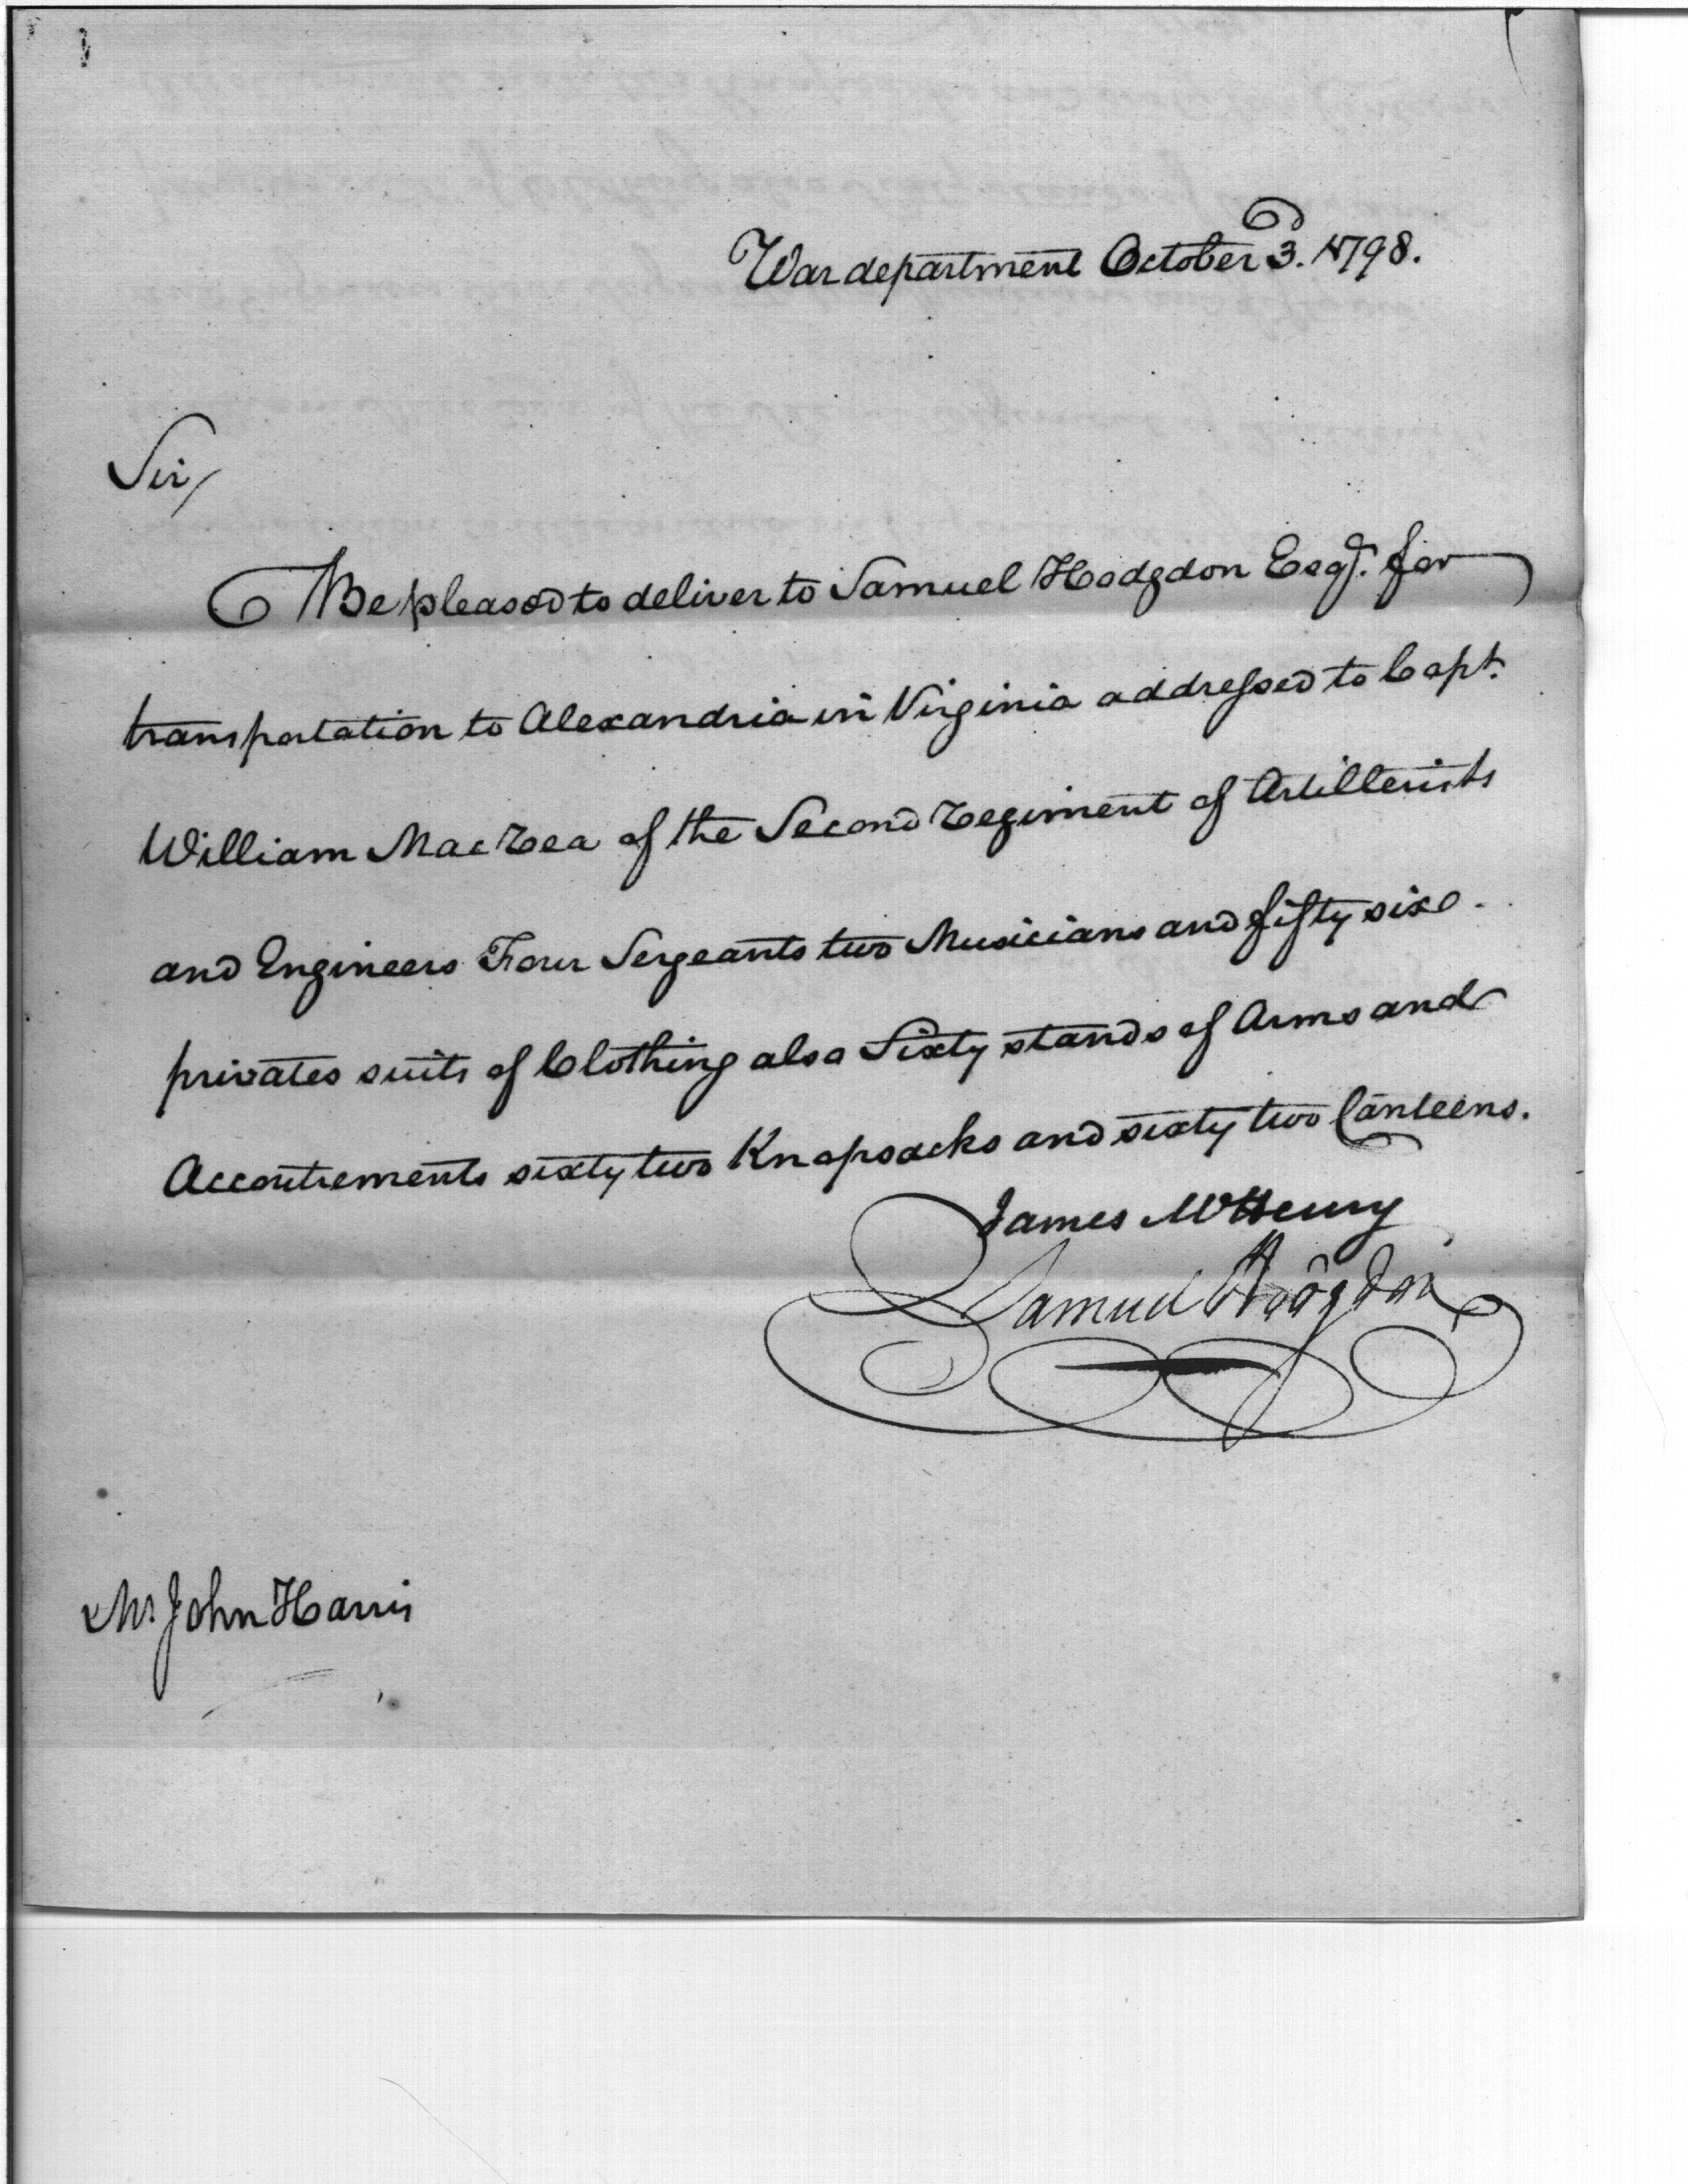 War department October 3d. 1798.
Sir/
Be pleased to deliver to Samuel Hodgdon Esqr. for
transportation to Alexandria in Virginia addressed to Capt.
William MacRea of the Second Regiment of Artillerists
and Engineers Four Sergeants two Musicians and fifty six
privates suits of Clothing also Sixty stands of Arms and
Accoutrements sixty two Knapsacks and sixty two Canteens.
James McHenry
Samuel Hodgdon
Mr John Harris